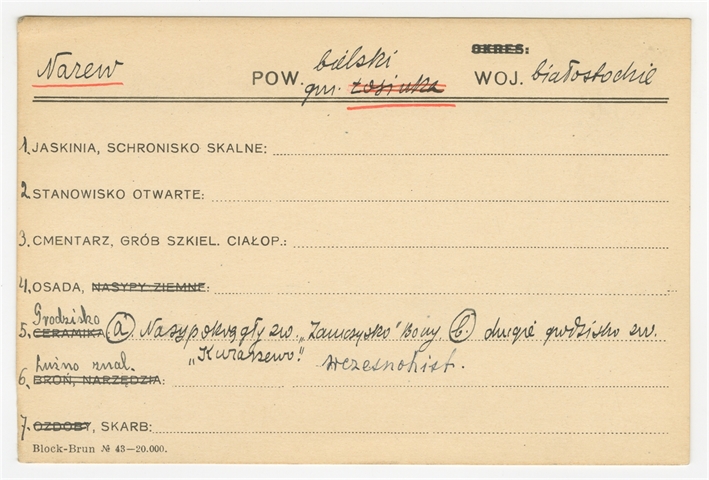 OKRES:
Narew POW. bielski WOJ. białostockie
gm. Łosinka
1. JASKINIA, SCHRONISKO SKALNE:
2 STANOWISKO OTWARTE:
3. CMENTARZ, GRÓB SZKIEL. CIAŁOP.:
4. OSADA, NASYPY ZIEMNE:
Grodzisko
5. CERAMIKA (a.) Nasyp okrągły zw. „Zamczysko" Bony. (b.) drugie grodzisko zw.
Luźno znal. „Kuraszewo". wczesnohist.
6. BROŃ, NARZĘDZIA:
7. OZDOBY, SKARB:
Block-Brun № 43—20.000.